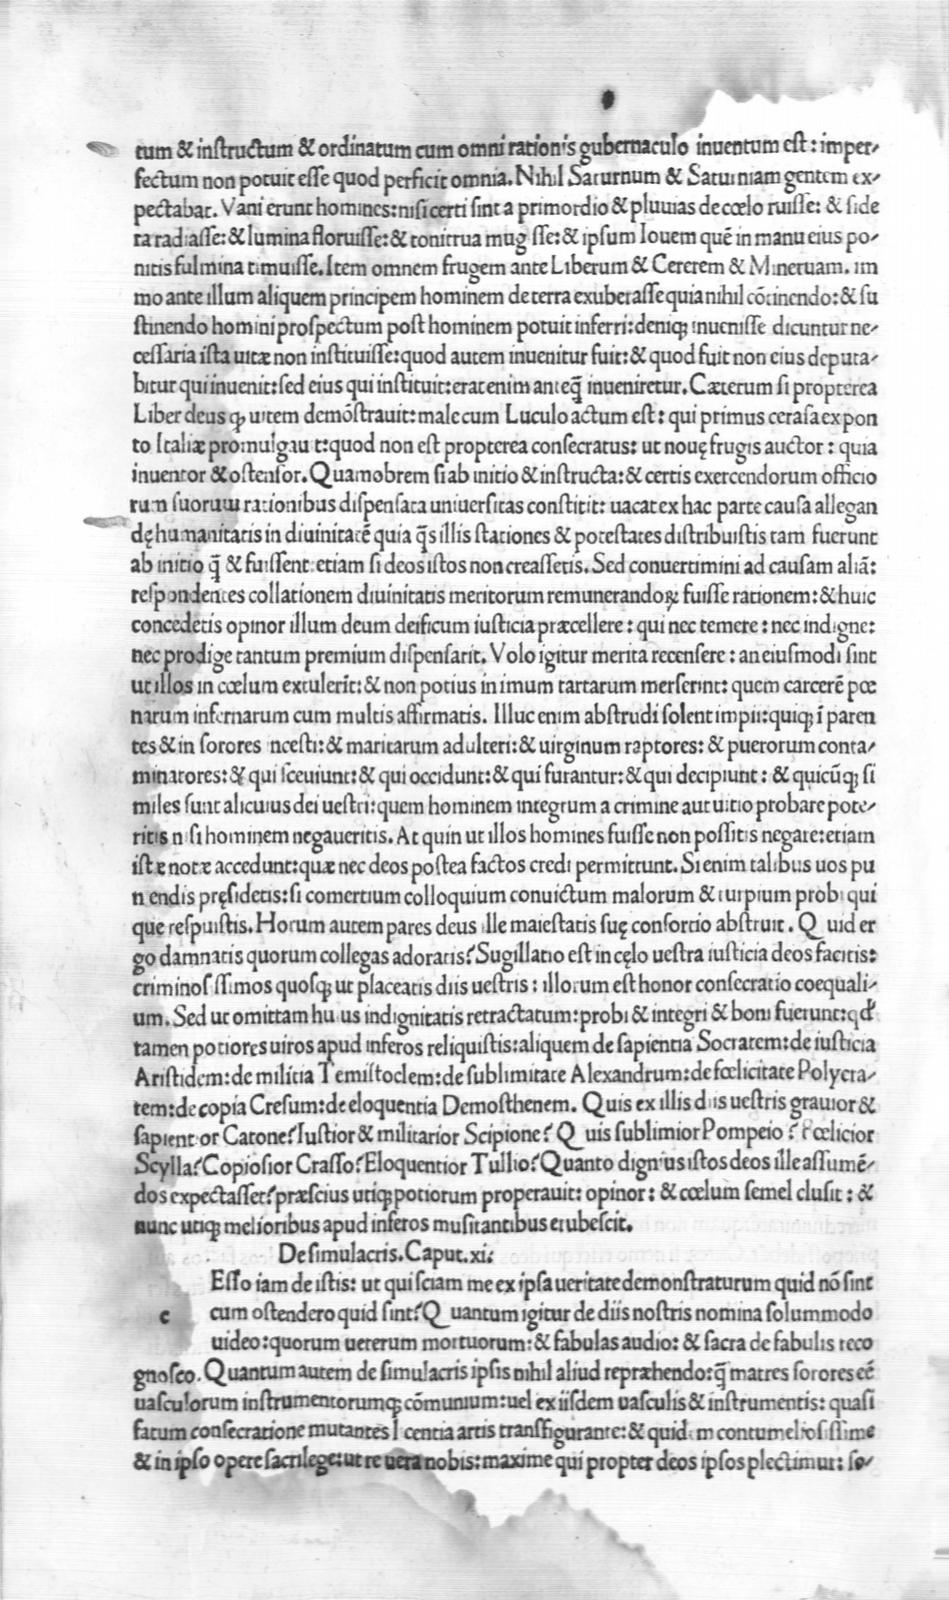 tum & instructum & ordinatum cum omni rationis gubernaculo inuentum est: imper-
fectum non potuit esse quod perficit omnia. Nihil Saturnum & Saturniam gentem ex-
pectabat. Vani erunt homines: nisi certi sint a primordio & pluuias de cœlo ruisse: & side
ra radiasse: & lumina floruisse: & tonitrua mugisse: & ipsum Iouem quē in manu eius po-
nitis fulmina timuisse. Item omnem frugem ante Liberum & Cererem & Mineruam. im
mo ante illum aliquem principem hominem de terra exuberasse quia nihil cōtinendo: & su
stinendo homini prospectum post hominem potuit inferri: deniqꝫ inuenisse dicuntur ne-
cessaria ista uitæ non instituisse: quod autem inuenitur fuit: & quod fuit non eius deputa-
bitur qui inuenit: sed eius qui instituit: erat enim anteq̄ inueniretur. Cæterum si propterea
Liber deus ꝙ uitem demōstrauit: male cum Luculo actum est: qui primus cerasa ex pon
to Italiæ promulgauit: quod non est propterea consecratus: ut nouę frugis auctor: quia
inuentor & ostensor. Quamobrem si ab initio & instructa: & certis exercendorum officio
rum suorum rationibus dispensata uniuersitas constitit: uacat ex hac parte causa allegan
dę humanitatis in diuinitatē quia q̄s illis stationes & potestates distribuistis tam fuerunt
ab initio q̄ & fuissent etiam si deos istos non creassetis. Sed conuertimini ad causam aliā:
respondentes collationem diuinitatis meritorum remunerandoꝝ fuisse rationem: & huic
concedetis opinor illum deum deificum iusticia præcellere: qui nec temere: nec indigne:
nec prodige tantum premium dispensarit. Volo igitur merita recensere: an eiusmodi sint
ut illos in cœlum extulerit: & non potius in imum tartarum merserint: quem carcerē pœ
narum infernarum cum multis affirmatis. Illuc enim abstrudi solent impii: quiqꝫ ī paren
tes & in sorores incesti: & maritarum adulteri: & uirginum raptores: & puerorum conta-
minatores: & qui sceuiunt: & qui occidunt: & qui furantur: & qui decipiunt: & quicūqꝫ si
miles sunt alicuius dei uestri: quem hominem integrum a crimine aut uitio probare pote-
ritis nisi hominem negaueritis. At quin ut illos homines fuisse non possitis negare: etiam
istæ notæ accedunt: quæ nec deos postea factos credi permittunt. Si enim talibus uos pu
niendis pręsidetis: si comertium colloquium conuictum malorum & turpium probi qui
que respuistis. Horum autem pares deus ille maiestatis suę consortio abstruit. Quid er
go damnatis quorum collegas adoratis? Sugillatio est in cęlo uestra iusticia deos facitis:
criminosissimos quosqꝫ ut placeatis diis uestris: illorum est honor consecratio coequali-
um. Sed ut omittam huius indignitatis retractatum: probi & integri & boni fuerunt: qđ
tamen potiores uiros apud inferos reliquistis: aliquem de sapientia Socratem: de iusticia
Aristidem: de militia Temistoclem: de sublimitate Alexandrum: de fœlicitate Polycra-
tem: de copia Cresum: de eloquentia Demosthenem. Quis ex illis diis uestris grauior &
sapientior Catone? Iustior & militarior Scipione? Quis sublimior Pompeio? Fœlicior
Scylla? Copiosior Crasso? Eloquentior Tullio? Quanto dignius istos deos ille assumē-
dos expectasset? præscius utiqꝫ potiorum properauit: opinor: & cœlum semel clusit: &
nunc utiqꝫ melioribus apud inferos musitantibus erubescit.
De simulacris. Caput. xi:
Esso iam de istis: ut qui sciam me ex ipsa ueritate demonstraturum quid nō sint
c cum ostendero quid sint? Quantum igitur de diis nostris nomina solummodo
uideo: quorum ueterum mortuorum: & fabulas audio: & sacra de fabulis reco
gnosco. Quantum autem de simulacris ipsis nihil aliud repræhendo: q̄ matres sorores eē
uasculorum instrumentorumqꝫ cōmunium: uel ex iisdem uasculis & instrumentis: quasi
fatum consecratione mutantes licentia artis transfigurante: & quidem contumeliosissime
& in ipso opere sacrilege: ut re uera nobis: maxime qui propter deos ipsos plectimur: so-